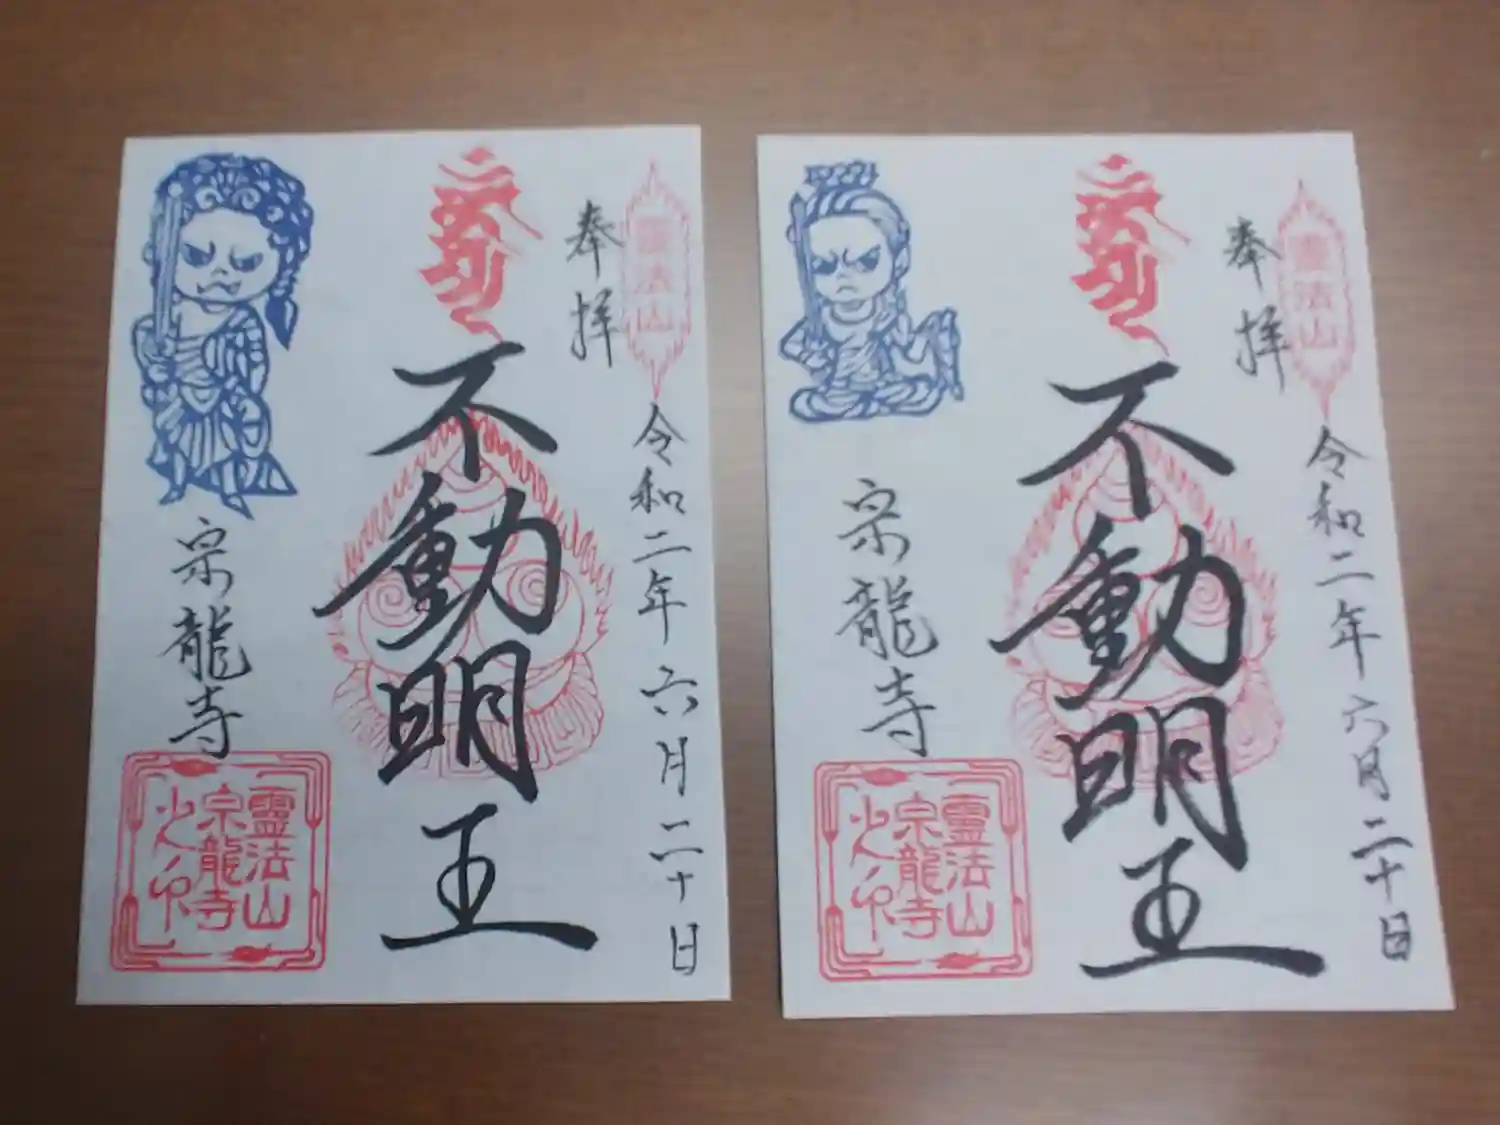 霊法山
奉拝
令和二年六月二十日
不動明王
宗龍寺
霊法山
宗龍寺
之印
霊法山
奉拝
令和二年六月二十日
不動明王
宗龍寺
霊法山
宗龍寺
之印